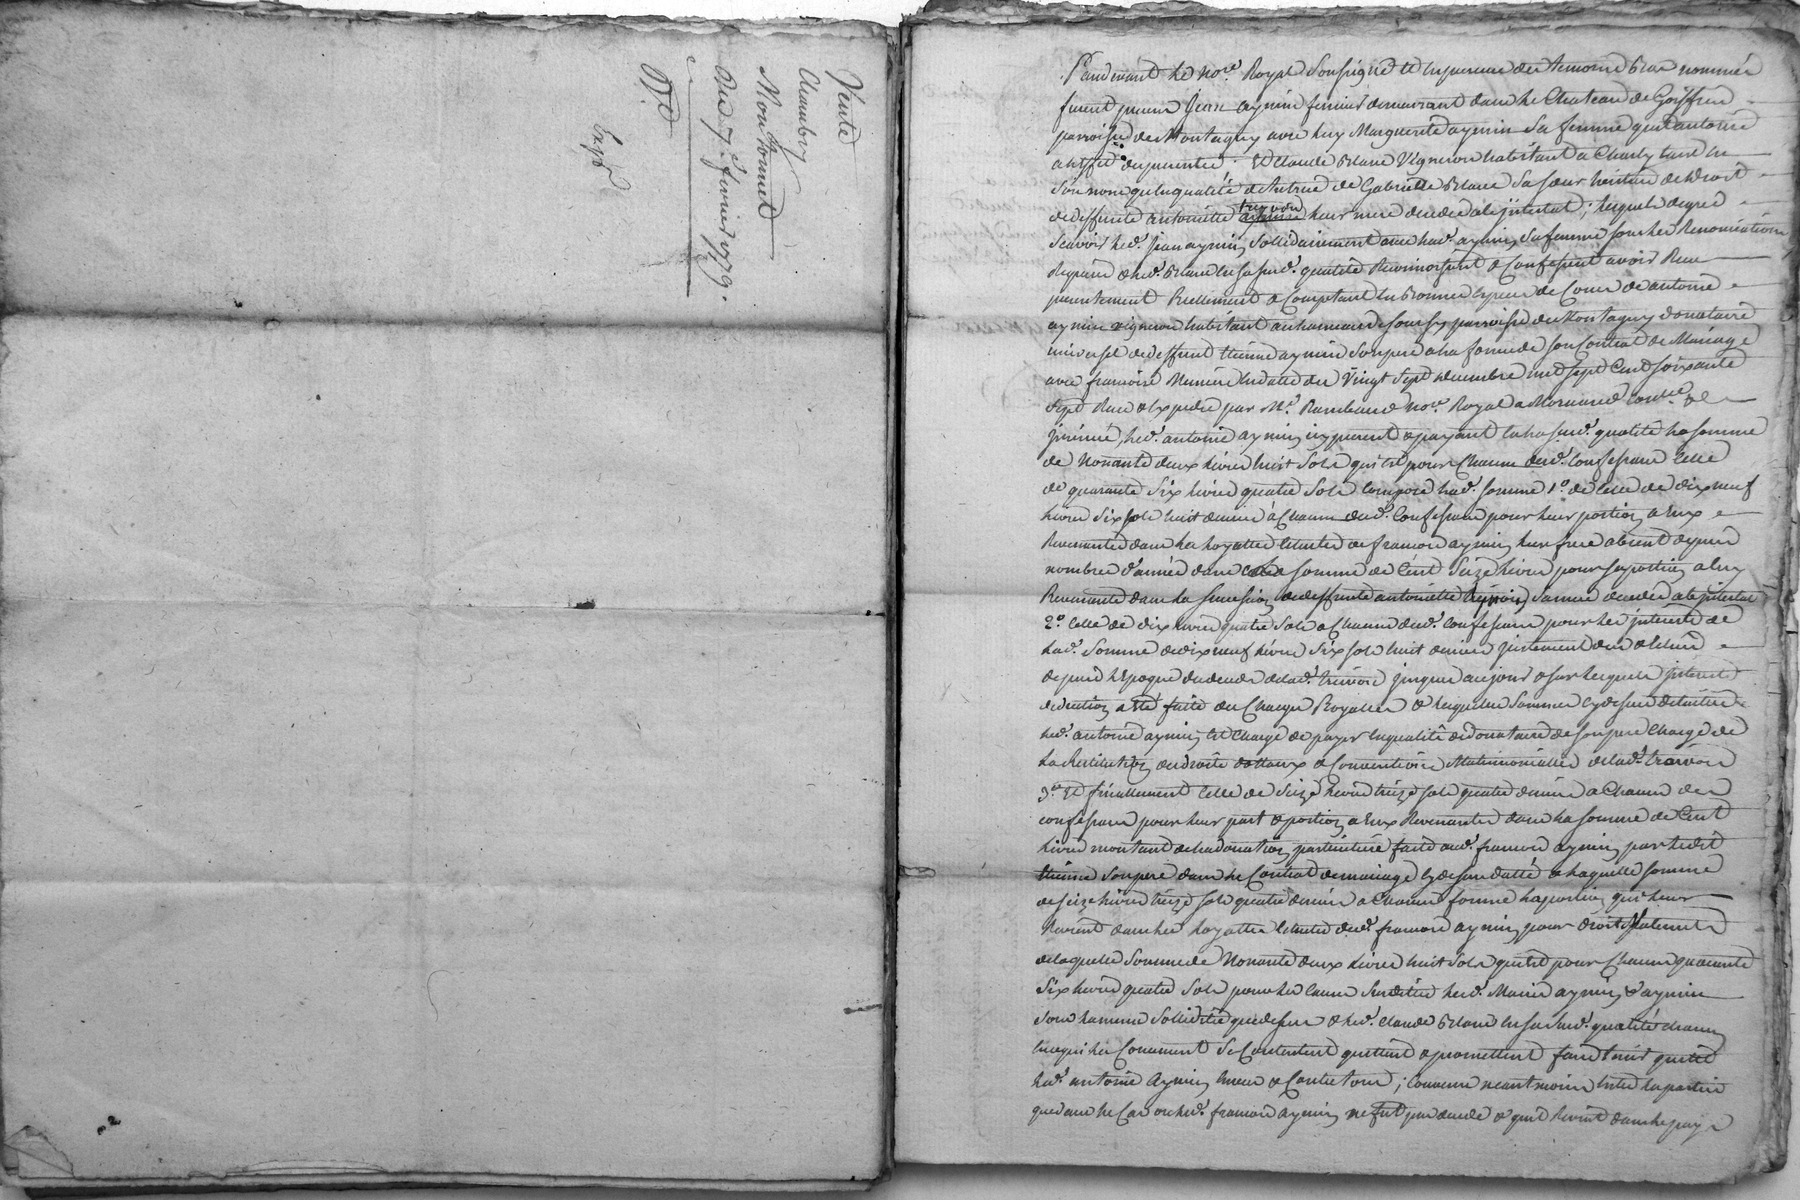 Vente
Chambry
Montroment
Du 7e fevrier 1779.
Expd
Pardevant le nore Royal Soussigné et en presence des temoins bas nommés
furent presens Jean aymin fermier demeurant dans le Chateau de Goiffieu
parroisse de Montagny avec luy Marguerite aymin Sa femme quil autorise
a l'effet des presentes. Et Claude Blanc Vigneron habitant a Charly tant en
Son nom qu'en qualité de de Gabrielle Blanc Sa Sœur heritiere de droit
de deffunte antoinette leur mere decedée ab jntestat; lesquels de gré
Scavoir led. Jean aymin Sollidairement avec lad. aymin Sa femme sous les Renonciations
Requises & led. Blanc en sa susd. qualité Reconnoissent & Confessent avoir Receu
presentement Réellement & Comptant en bonnes especes de Cours de antoine
aymin vigneron habitant au hameau de Sourzy parroisse de Montagny donataire
universel de deffunt Etienne aymin Son pere a la forme de son Contrat de Mariage
avec francoise en datte du Vingt Sept decembre mil Sept Cent soixante
Sept Receu & Expedié par Me. Rambaud nore Royal a Mornand
led. antoine aymin icy present & payant en la susd. qualité la somme
de Nonante deux livres huit Sols qui est pour Chacun desd. Confessans Celle
de quarante Six livres quatre Sols Composé lad. somme 1o de Celle de dix neuf
livres Six sols huit deniers à Chacun desd. Confessans pour leur portion a Eux
Revenante dans la hoyrie de francois aymin leur frere absent depuis
nombre d'années dans la somme de Cent Seize livres pour sa portion a luy
Revenante dans la Succession de deffunte antoinette Sa mere decedée ab jntestat
2o Celle de dix livres quatre Sols a Chacun desd. Confessans pour les jnterets de
lad. Somme de dix neuf livres Six sols huit deniers justement
depuis l'Epoque du deces de lad. jusques aujourd'huy sur lesquels jnterets
deduction a Eté faite des Charges Royalles & lesquelles Sommes cy dessus detaillées
led. antoine aymin est Chargé de payer en qualité de donataire de son pere Chargé de
la Restitution des droits dottaux & Conventions Matrimonialles de lad.
3o Et finallement Celle de Seize livres treize sols quatre deniers a Chacun des
confessans pour leur part & portion a Eux Revenantes dans la somme de Cent
livres montant de la donation particuliere faite aud. francois aymin par ledit
Etienne Son pere dans le Contrat de mariage cy dessus datté & laquelle somme
de seize livres treize sols quatre deniers a Chacun forme la portion qui leur
Revient dans les hoyrie dud. francois aymin pour droits Paternels
de laquelle Somme de Nonante deux livres huit Sols qui est pour Chacun quarante
Six livres quatre Sols pour les Causes Susdites lesd. Mariés aymin & aymin
sous la meme Sollidité que dessus & led. Claude Blanc en sa Susd. qualité chacun
en ce qui les Concernent Se Contentent quittent & promettent faire tenir quitte
led. antoine Aymin, Envers & Contre tous; Convenu neantmoins Entre les parties
que dans le Cas ou led. francois aymin ne fut pas decedé & quil Revint dans le pays